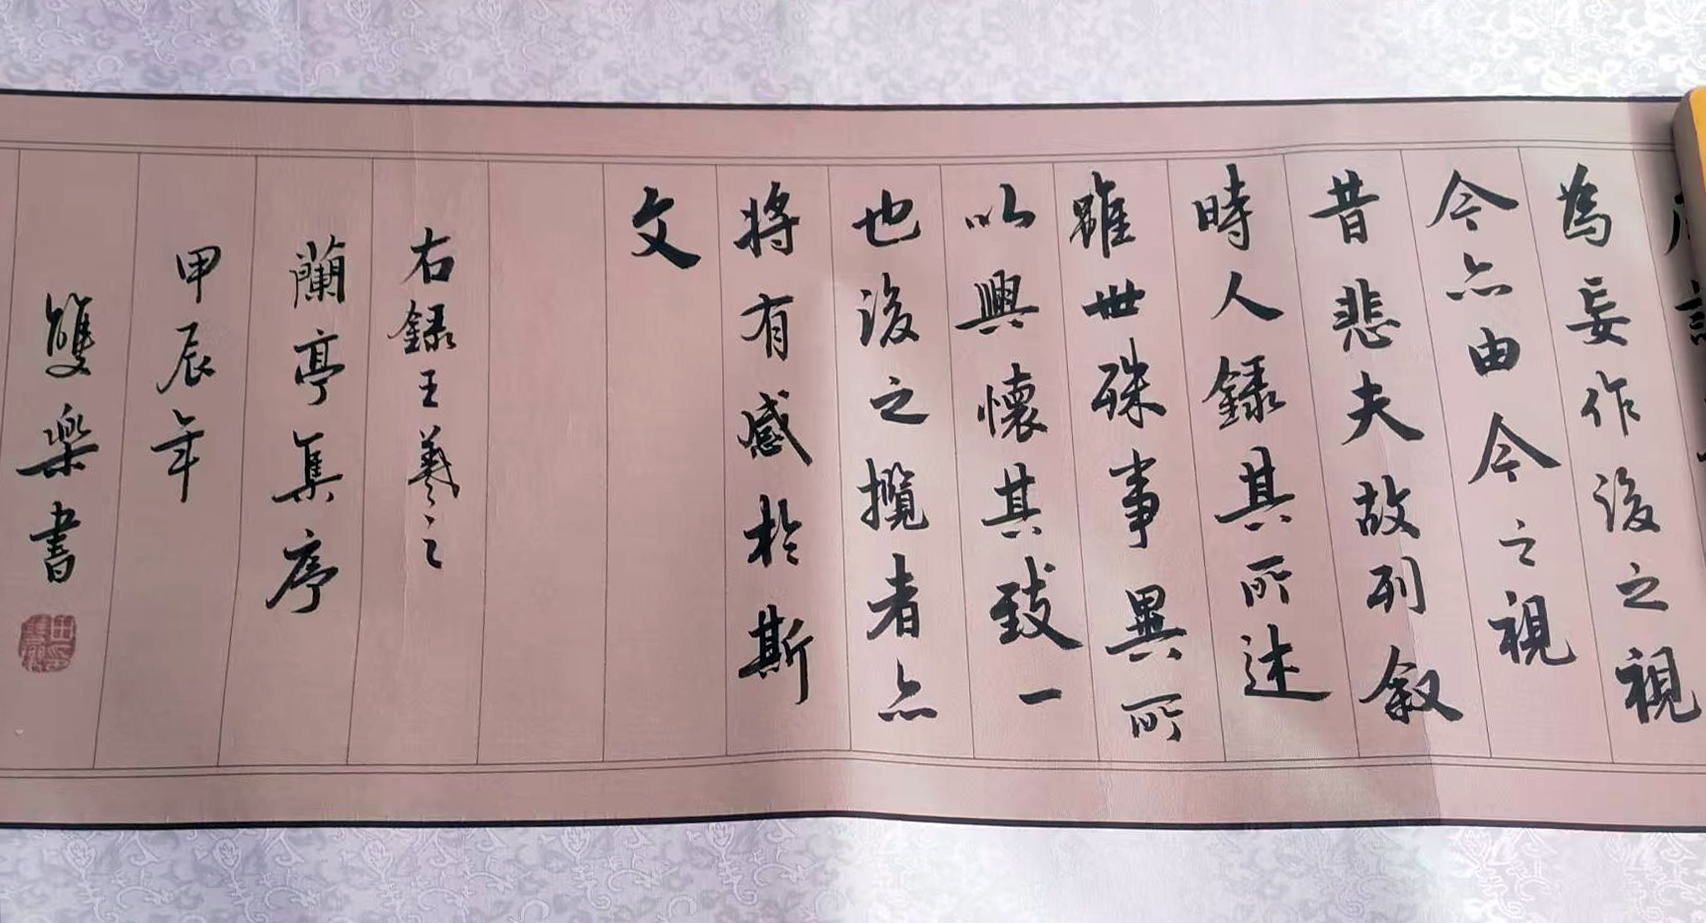 為妄作後之視
今亦由今之視
昔悲夫故列叙
時人錄其所述
雖世殊事異所
以興懷其致一
也後之攬者亦
將有感於斯
文
右錄王羲之
蘭亭集序
甲辰年
雙樂書